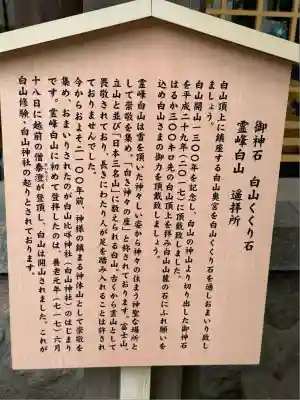 御神石 白山くくり石
霊峰白山 遥拝所
白山頂上に鎮座する白山奥宮を白山くくり石を通しおまいり致し
ましょう。
白山開山一三〇〇年を記念し、白山の神山より切り出した御神石
を平成二十九年(二〇一七)に頂戴致しました。
はるか三〇〇キロ先の白山頂上を拝み白山山麓の石にふれ願いを
込め白山さまの御力を頂戴致しましょう。
霊峰白山は雪を頂いた神々しい姿から神々の住まう神聖な場所と
して崇敬を集め、「白き神々の座」と称されております。富士山、
立山と並び「日本三名山」に数えられる白山。古くから霊山として
畏敬されており、長きにわたり人が足を踏み入れることは許され
ておりませんでした。
今からおよそ二一〇〇年前、神様の鎮まる神体山として崇敬を
集め、おまいりされたのが白山比咩神社(名白山神社)のはじまり
です。霊峰白山に初めて登拝したのは、養老元年(七一七)六月
十八日に越前の僧泰澄が登頂し、白山は開山されました。これが
白山修験、白山神社の起りとされております。